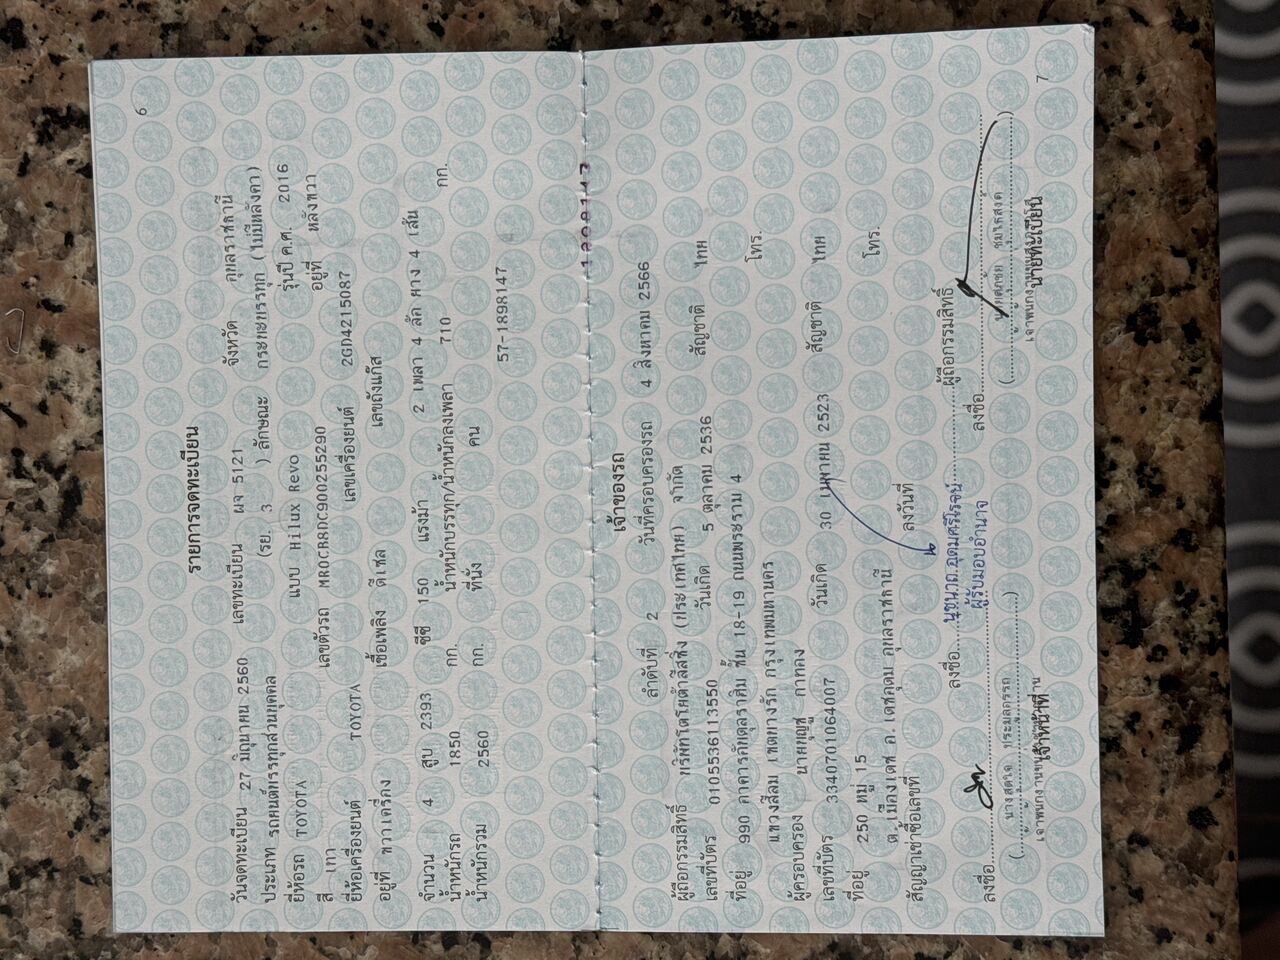 6
รายการจดทะเบียน
วันจดทะเบียน 27 มิถุนายน 2560 เลขทะเบียน ผจ 5121 จังหวัด อุบลราชธานี
ประเภท รถยนต์บรรทุกส่วนบุคคล (รย. 3 ) ลักษณะ กระบะบรรทุก (ไม่มีหลังคา)
ยี่ห้อรถ TOYOTA แบบ Hilux Revo รุ่นปี ค.ศ. 2016
สี เทา เลขตัวรถ MR0CR8DC900255290 อยู่ที่ หลังขวา
ยี่ห้อเครื่องยนต์ TOYOTA เลขเครื่องยนต์ 2GD4215087
อยู่ที่ ขวาเครื่อง เชื้อเพลิง ดีเซล เลขถังแก๊ส
จำนวน 4 สูบ 2393 ซีซี 150 แรงม้า 2 เพลา 4 ล้อ ยาง 4 เส้น
น้ำหนักรถ 1850 กก. น้ำหนักบรรทุก/น้ำหนักลงเพลา 710 กก.
น้ำหนักรวม 2560 กก. ที่นั่ง คน
57-1898147
เจ้าของรถ
ลำดับที่ 2 วันที่ครอบครองรถ 4 สิงหาคม 2566
ผู้ถือกรรมสิทธิ์ บริษัทโตโยต้าลีสซิ่ง (ประเทศไทย) จำกัด
เลขที่บัตร 0105536113550 วันเกิด 5 ตุลาคม 2536 สัญชาติ ไทย
ที่อยู่ 990 อาคารอับดุลราฮิม ชั้น 18-19 ถนนพระราม 4
แขวงสีลม เขตบางรัก กรุงเทพมหานคร โทร.
ผู้ครอบครอง
เลขที่บัตร 3340701064007 วันเกิด 30 เมษายน 2523 สัญชาติ ไทย
ที่อยู่ 250 หมู่ 15
ต.เมืองเดช อ.เดชอุดม อุบลราชธานี โทร.
สัญญาเช่าซื้อเลขที่ ลงวันที่
ลงชื่อ นุชนาถ อุดมศรีโรจน์ ผู้ถือกรรมสิทธิ์
ผู้รับมอบอำนาจ
ลงชื่อ ลงชื่อ
เจ้าหน้าที่ นายทะเบียน
7